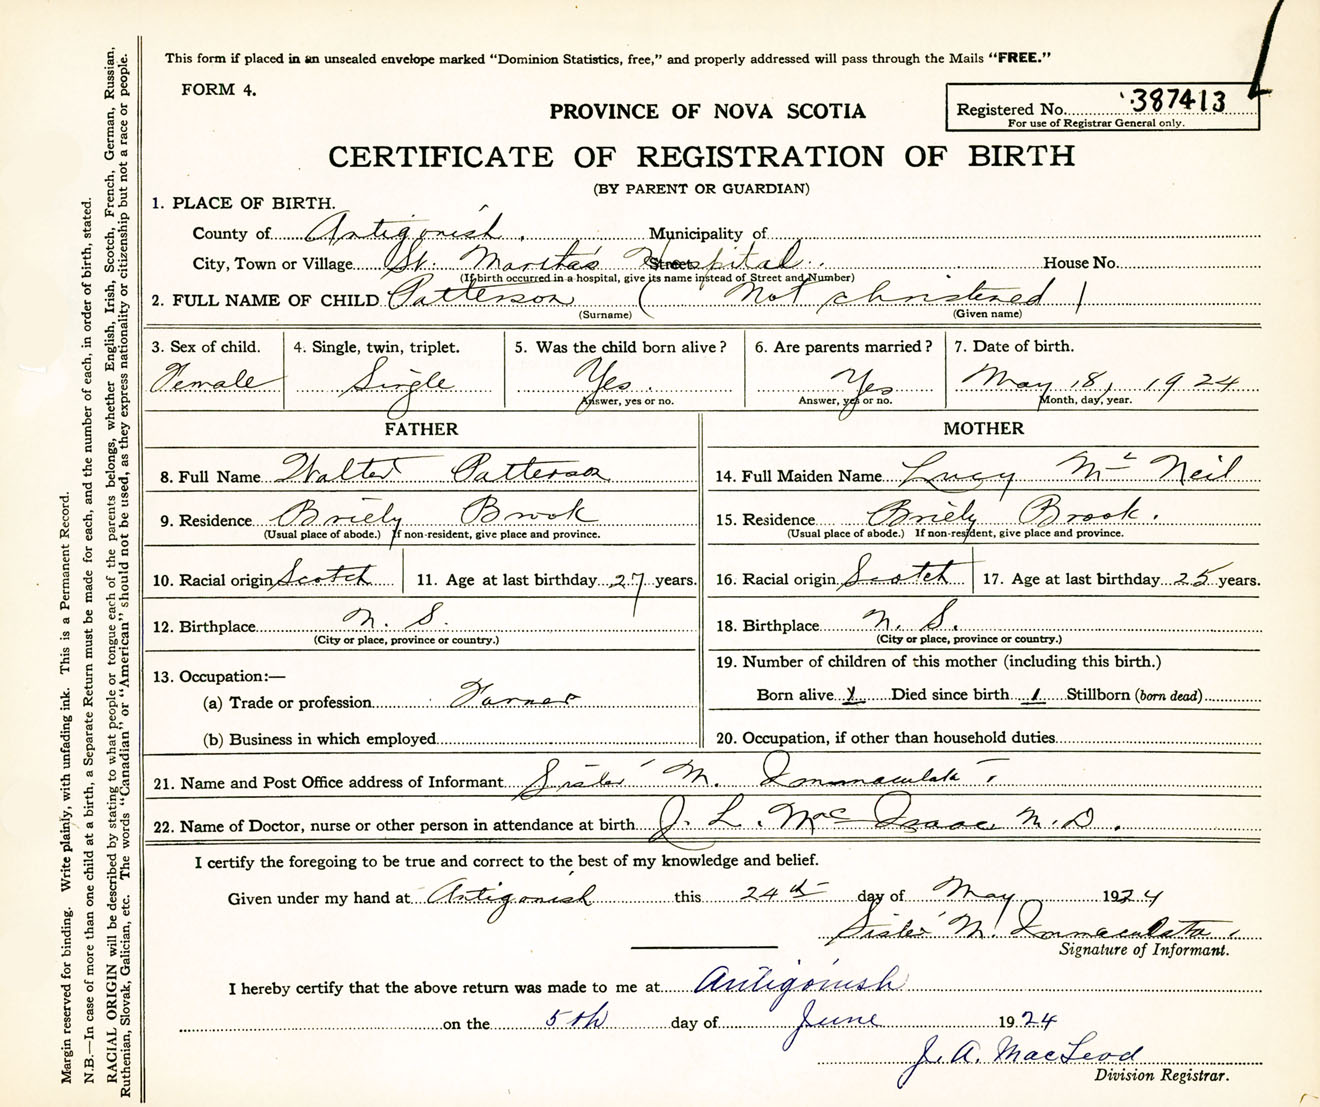 This form if placed in an unsealed envelope marked "Dominion Statistics, free," and properly addressed will pass through the Mails "FREE."
FORM 4.
PROVINCE OF NOVA SCOTIA
Registered No. 387413
For use of Registrar General only.
CERTIFICATE OF REGISTRATION OF BIRTH
(BY PARENT OR GUARDIAN)
1. PLACE OF BIRTH.
County of Antigonish. Municipality of
City, Town or Village St. Martha's Hospital. Street House No.
(If birth occurred in a hospital, give its name instead of Street and Number)
2. FULL NAME OF CHILD Patterson (Not christened)
(Surname) (Given name)
3. Sex of child. 4. Single, twin, triplet. 5. Was the child born alive? 6. Are parents married? 7. Date of birth.
Female Single Yes. Yes May 18, 1924
Answer, yes or no. Answer, yes or no. Month, day, year.
FATHER MOTHER
8. Full Name Walter Patterson 14. Full Maiden Name Lucy Mc Neil
9. Residence Briely Brook 15. Residence Briely Brook.
(Usual place of abode.) If non-resident, give place and province. (Usual place of abode.) If non-resident, give place and province.
10. Racial origin Scotch 11. Age at last birthday 27 years. 16. Racial origin Scotch 17. Age at last birthday 25 years.
12. Birthplace N. S. 18. Birthplace N. S.
(City or place, province or country.) (City or place, province or country.)
13. Occupation:— 19. Number of children of this mother (including this birth.)
(a) Trade or profession Farmer Born alive Died since birth 1 Stillborn (born dead)
(b) Business in which employed 20. Occupation, if other than household duties
21. Name and Post Office address of Informant Sister M. Immaculata.
22. Name of Doctor, nurse or other person in attendance at birth J. L. MacIsaac M.D.
I certify the foregoing to be true and correct to the best of my knowledge and belief.
Given under my hand at Antigonish this 24th day of May 1924
Sister M. Immaculata.
Signature of Informant.
I hereby certify that the above return was made to me at Antigonish
on the 5th day of June 1924
J. A. MacLeod
Division Registrar.
Margin reserved for binding. Write plainly, with unfading ink. This is a Permanent Record.
N.B.—In case of more than one child at a birth, a Separate Return must be made for each, and the number of each, in order of birth, stated.
RACIAL ORIGIN will be described by stating to what people or tongue each of the parents belongs, whether English, Irish, Scotch, French, German, Russian,
Ruthenian, Slovak, Galician, etc. The words "Canadian" or "American" should not be used, as they express nationality or citizenship but not a race or people.